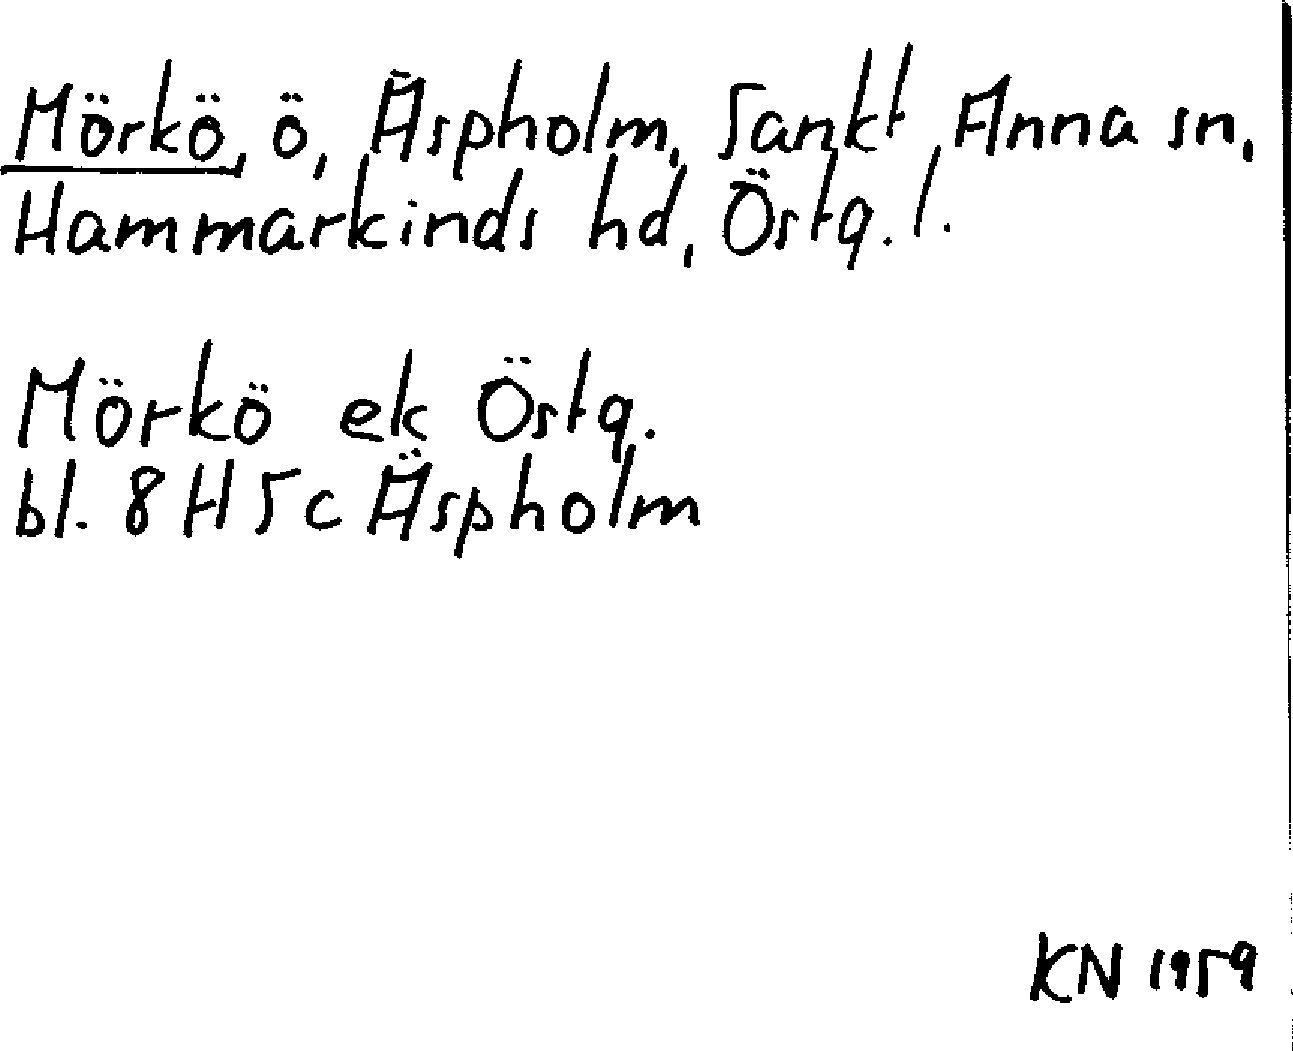 Mörkö, ö, Äspholm, Sankt Anna sn,
Hammarkinds hd, Östg. l.
Mörkö ek Östg.
bl. 8 H 5 c Äspholm
KN 1959